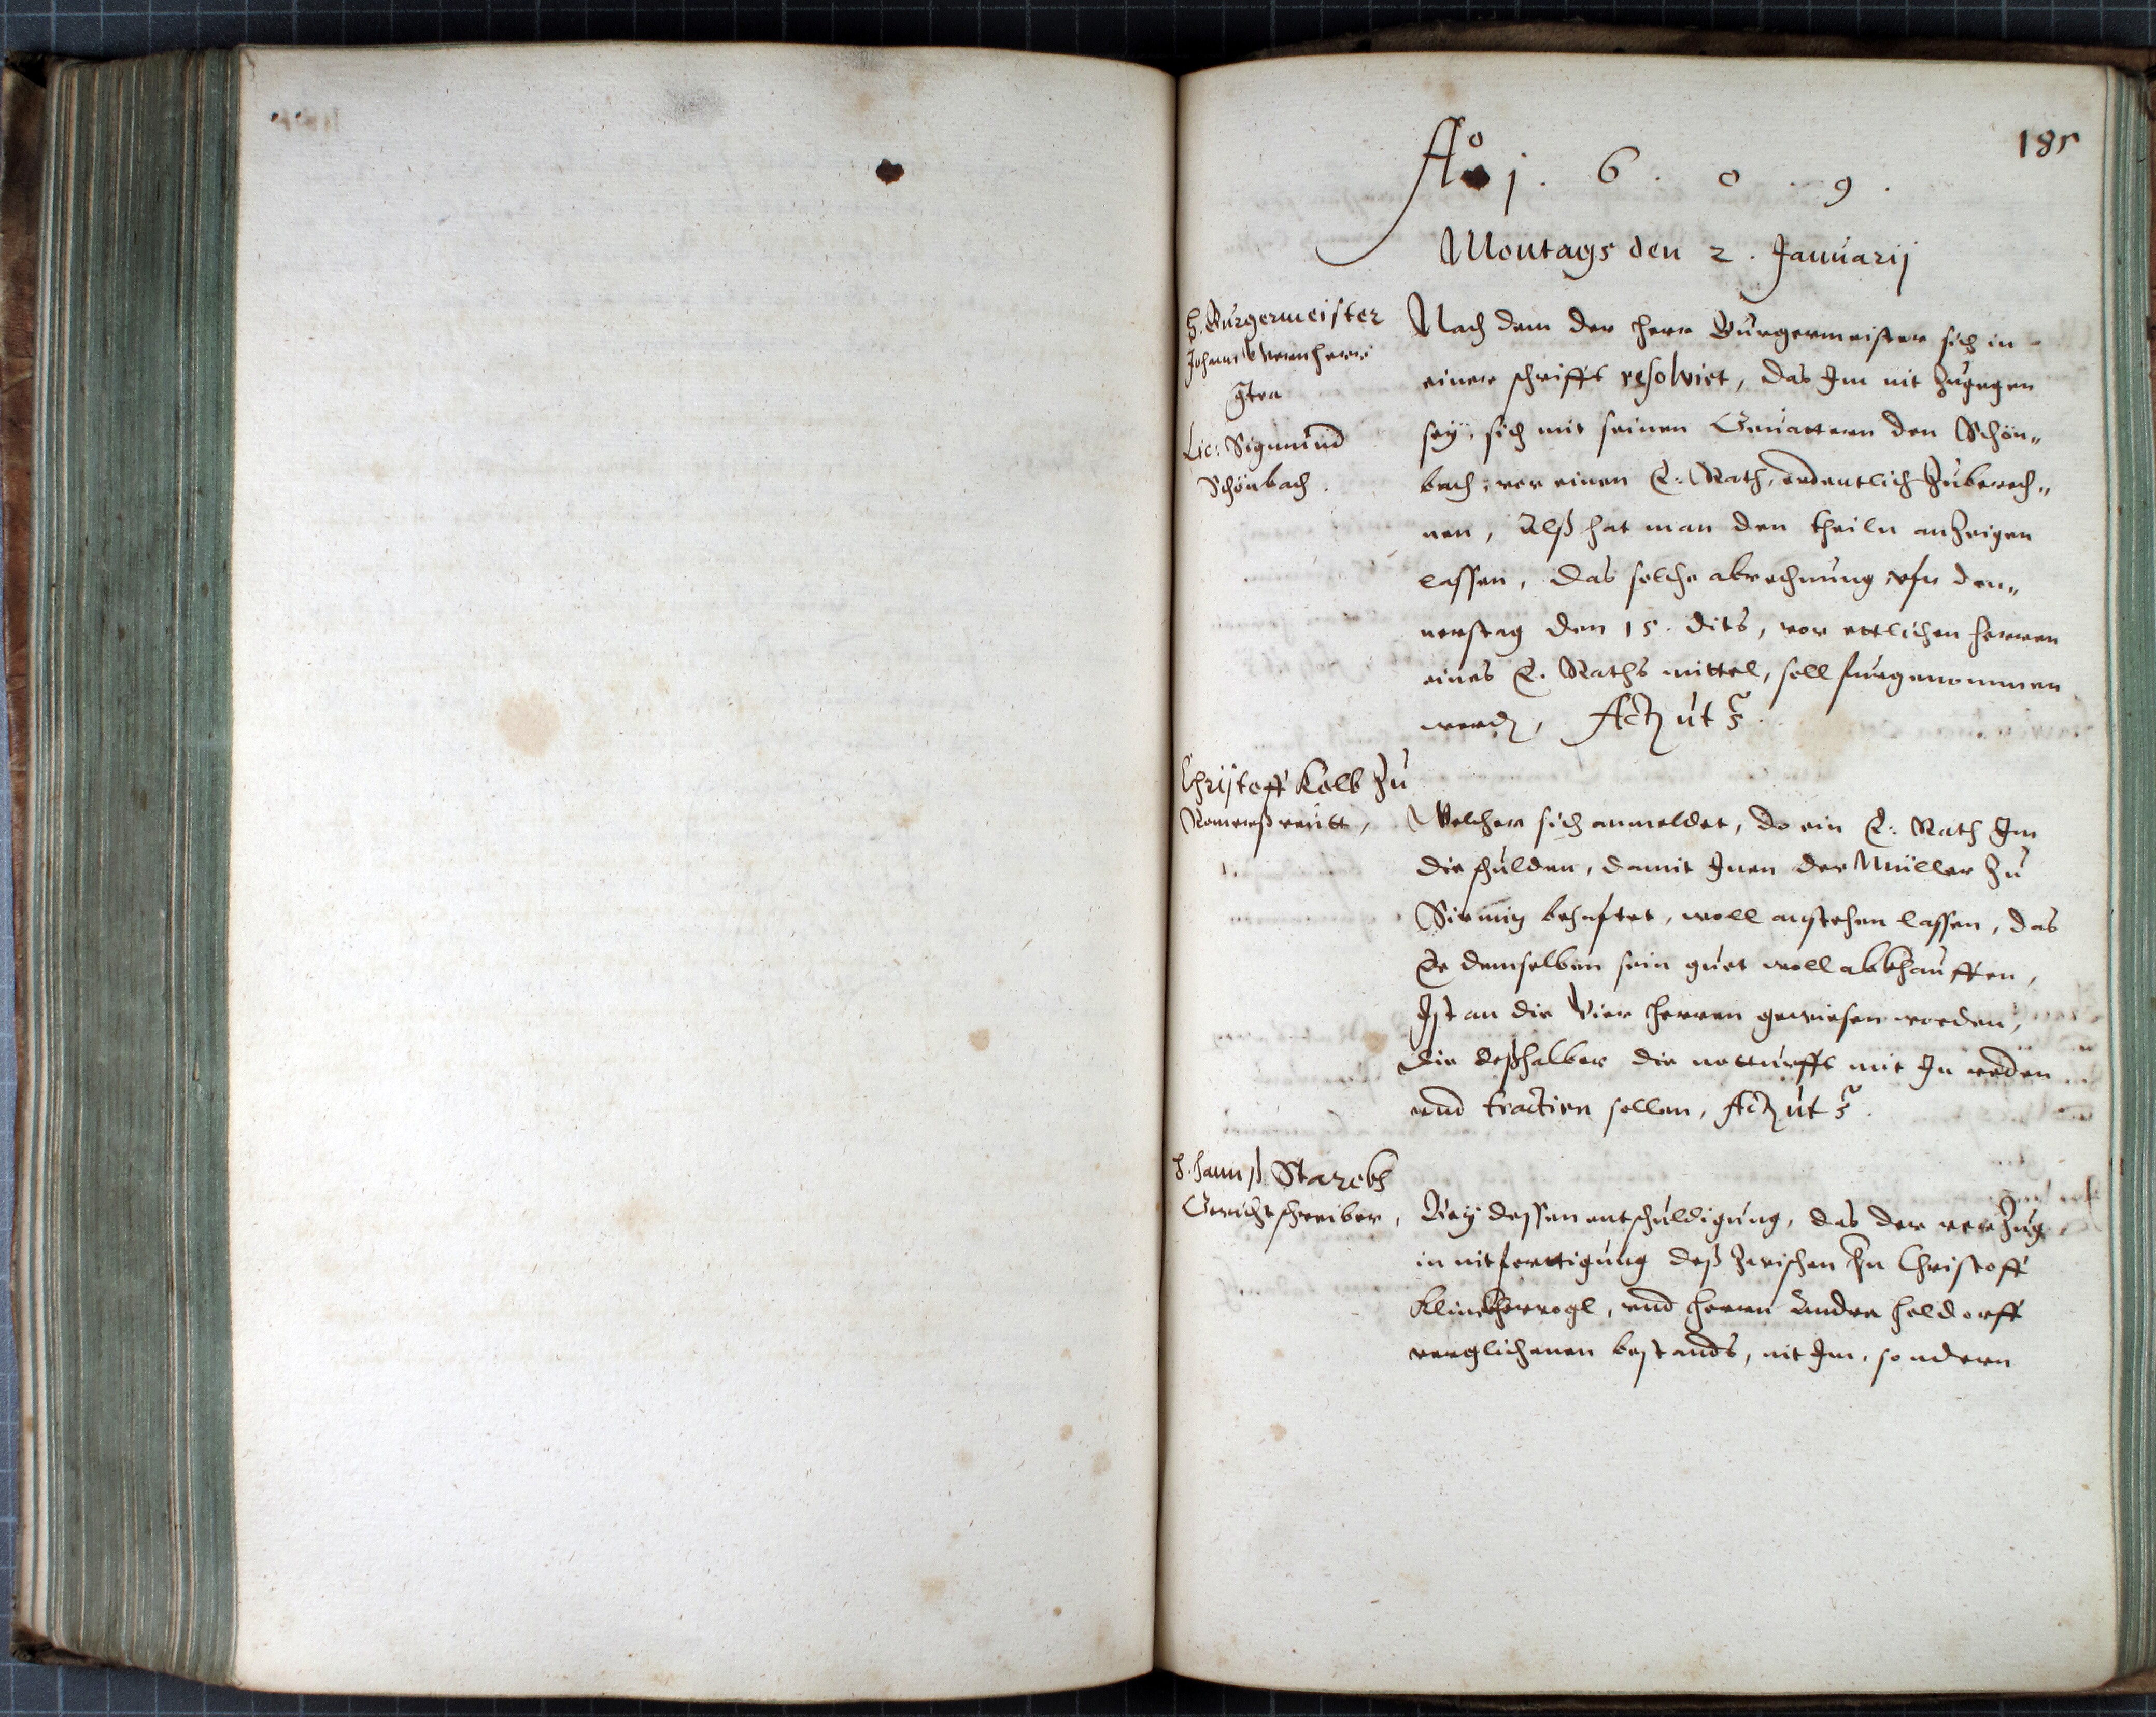 185
Ao 1. 6. 0. 9.
Montags den 2. Januarij
H. Burgermeister
Johann Wernherr
gtra
Lic: Sigmund
Schönbach.
Nach dem der Herr Burgermeister sich in
einer schrifft resolvirt, das Im nit zugegen
sey, sich mit seinen Gevattern den Schön„
bach, vor einen E. Rath, ordentlich zuberech„
nen, Alß hat man den theiln anzeigen
lassen, das solche abrechnung, ufn don„
nerstag den 15. dits, vor ettlichen herren
eines E. Raths mittel, soll furgenommen
werden, Act ut s.
Christoff Kolb zu
Romerßreütt,
Welcher sich anmeldet, do ein E. Rath Im
die schulden, damit Inen der Müller zu
behafftet, woll anstehen lassen, das
Er demselben sein guet woll abkhaufften,
Ist an die Vier herren gewiesen worden,
die deßhalber die notturfft mit In reden
und tractirn sollen, Act ut s.
H. Hannß Starckh
Gerichtschreiber,
Bey dessen entschuldigung, das der verzug
in nitferttigung deß zwischen Hn Christoff
Klinckhervogl, und herrn Andre Heldorff
verglichenen bestandts, nit Im, sondern